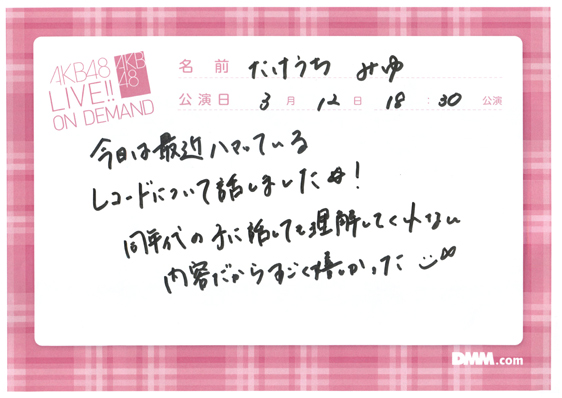 AKB48
LIVE!!
ON DEMAND
AKB
48
名前 たけうち みゆ
公演日 3月12日 18:30 公演
今日は最近ハマっている
レコードについて話しました!
同年代の子に話しても理解してくれない
内容だからすごく嬉しかった
DMM.com